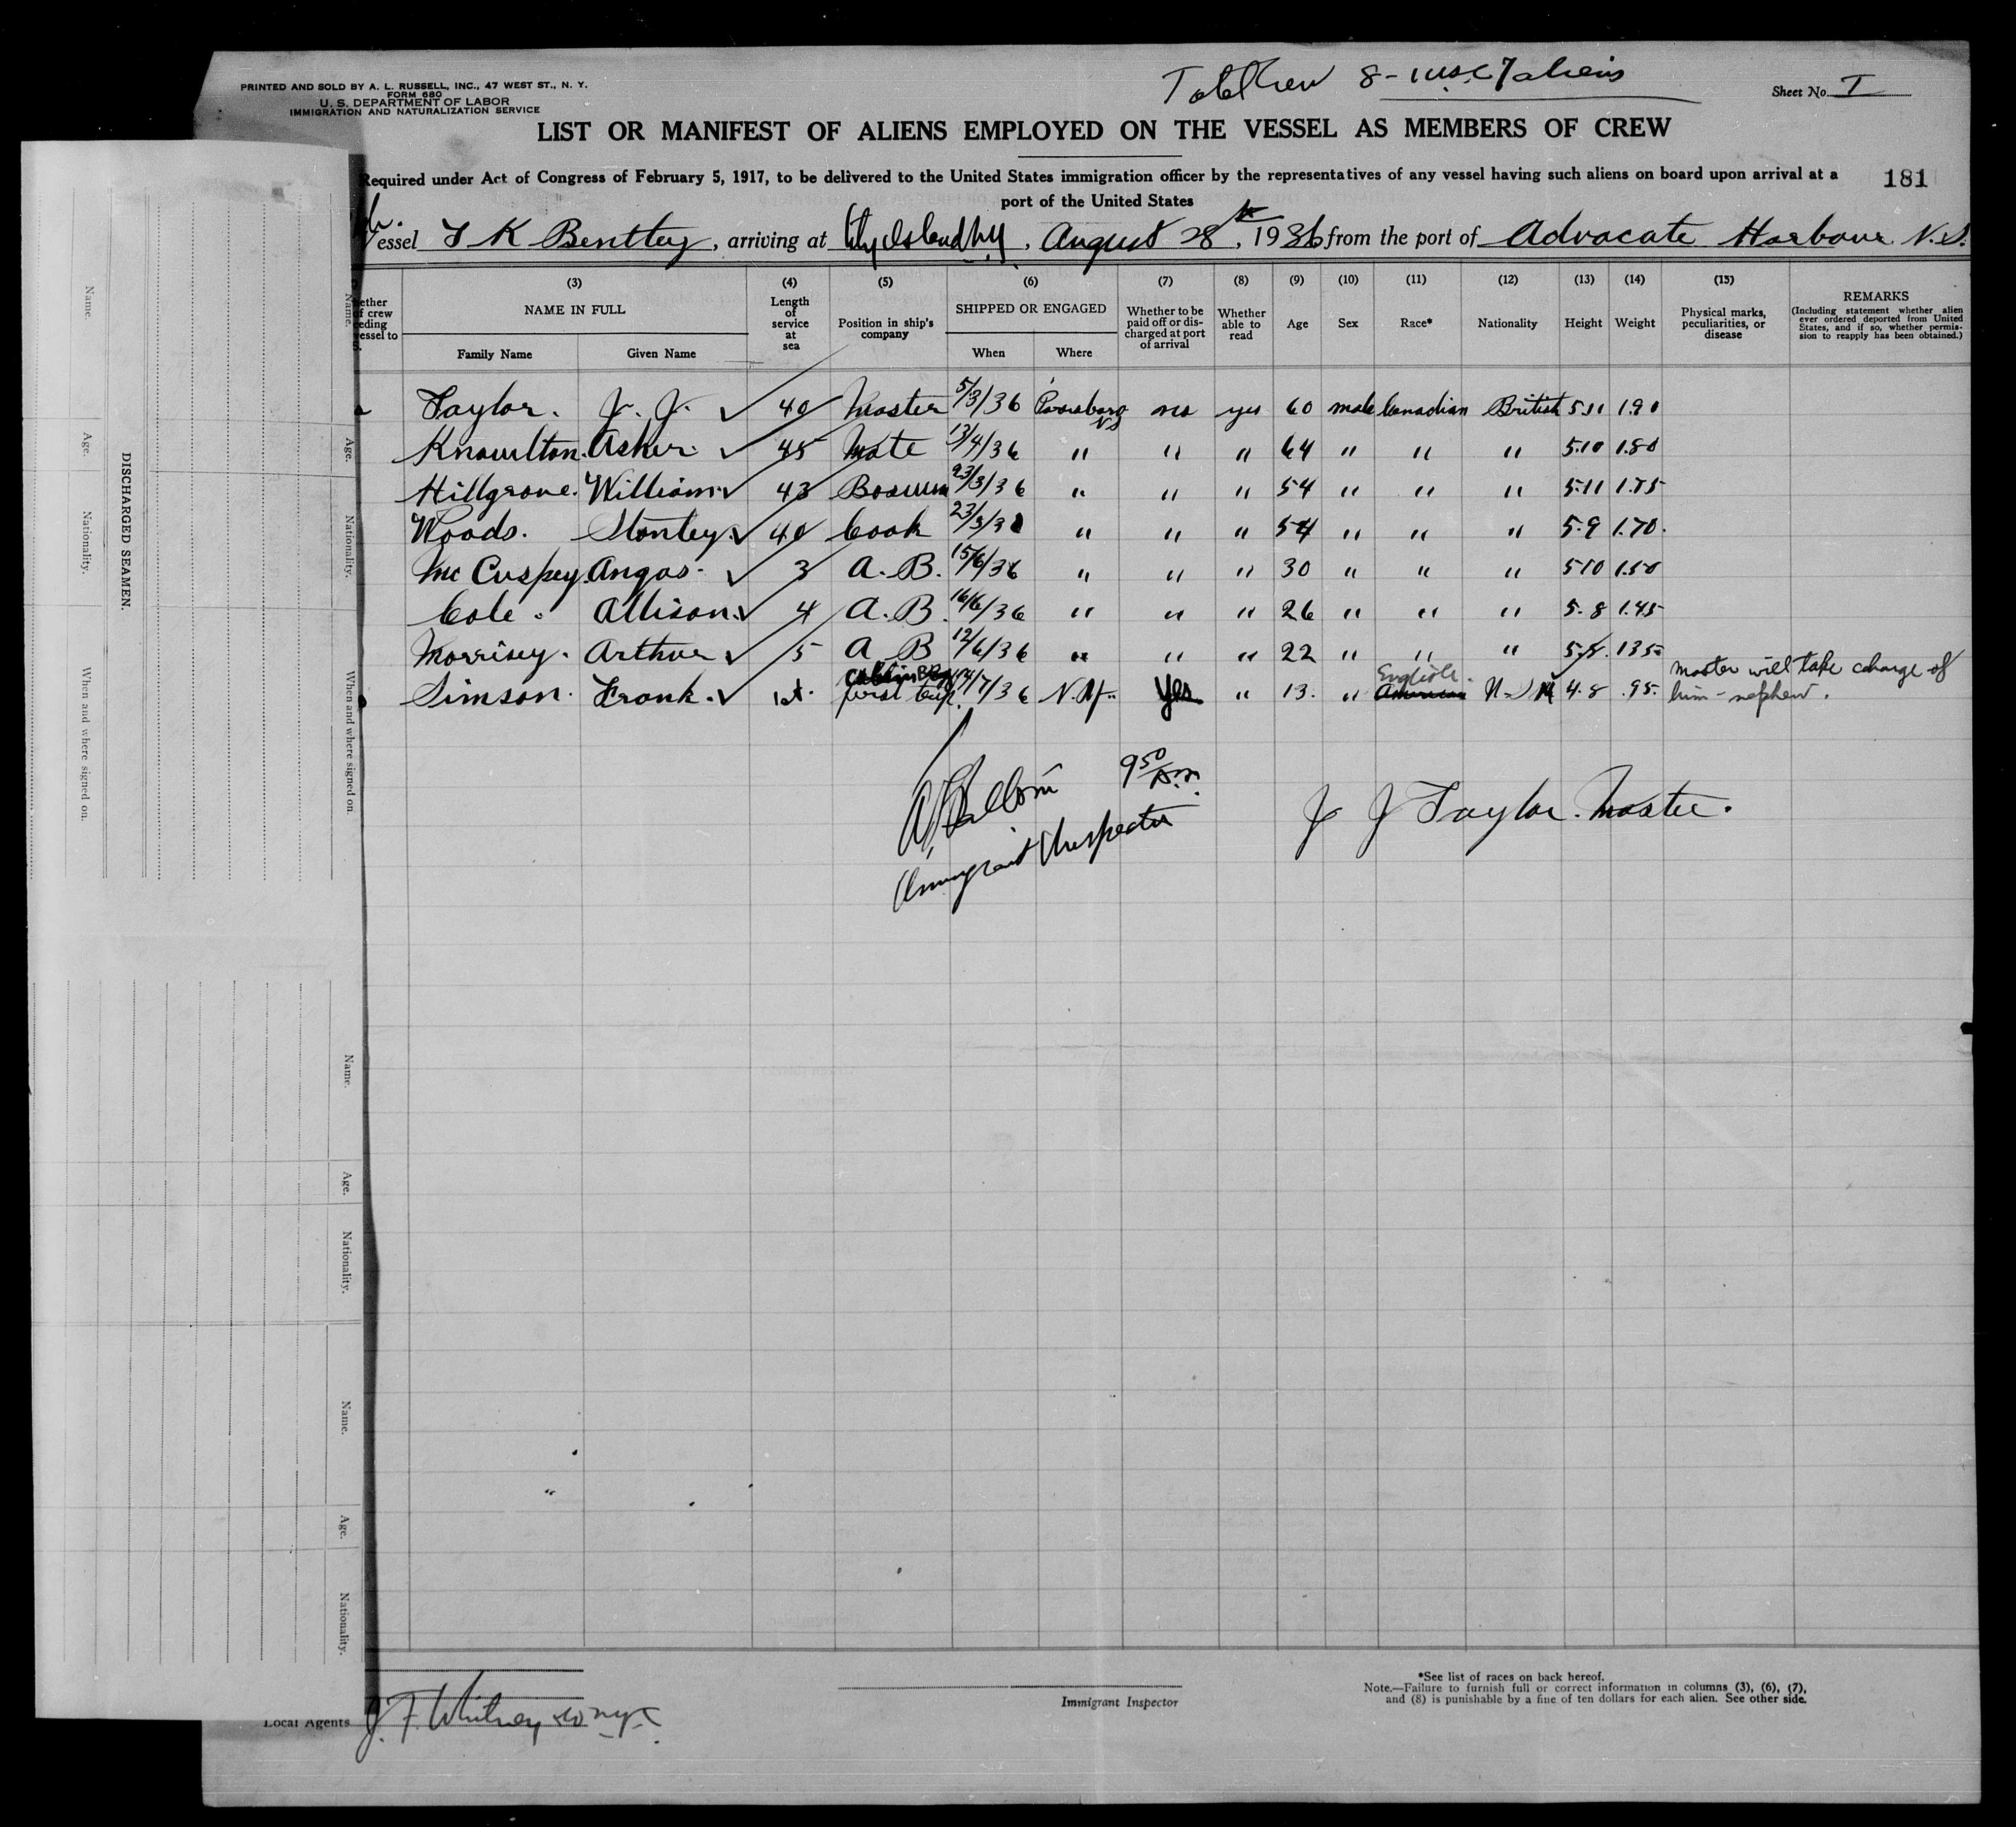 PRINTED AND SOLD BY A. L. RUSSELL, INC., 47 WEST ST., N. Y.
FORM 680
U. S. DEPARTMENT OF LABOR
IMMIGRATION AND NATURALIZATION SERVICE
8 - 1 USC 7 aliens
Sheet No. I
LIST OR MANIFEST OF ALIENS EMPLOYED ON THE VESSEL AS MEMBERS OF CREW
Required under Act of Congress of February 5, 1917, to be delivered to the United States immigration officer by the representatives of any vessel having such aliens on board upon arrival at a
port of the United States
181
Vessel T K Bentley, arriving at City Island NY, August 28th, 1936 from the port of Advocate Harbour N.S.
(3) (4) (5) (6) (7) (8) (9) (10) (11) (12) (13) (14) (15)
NAME IN FULL
Family Name Given Name
Length of service at sea
Position in ship's company
SHIPPED OR ENGAGED
When Where
Whether to be paid off or discharged at port of arrival
Whether able to read
Age Sex Race* Nationality Height Weight
Physical marks, peculiarities, or disease
REMARKS
(Including statement whether alien ever ordered deported from United States, and if so, whether permission to reapply has been obtained.)
Taylor. J. J. ✓ 40 Master 5/3/36 Parrsboro NS no yes 60 male Canadian British 5.11 190
Knowlton. Asher. ✓ 45 Mate 13/4/36 " " " 64 " " " 5.10 1.80
Hillgrove. William ✓ 43 Bosun 23/3/36 " " " 54 " " " 5.11 1.75
Woods. Stanley. ✓ 40 Cook 23/3/36 " " " 54 " " " 5.9 1.70.
Angas. ✓ 3 A. B. 15/6/36 " " " 30 " " " 5.10 1.50
Cole. Allison. ✓ 4 A. B. 16/6/36 " " " 26 " " " 5.8 1.45
Morrisey. Arthur ✓ 5 A B 12/6/36 " " " 22 " " " 5.5. 135
Simson. Frank. ✓ 1st. Cabin Boy first trip. /7/36 N.Y. Yes " 13. " English. American 4.8 .95. Master will take charge of
him - nephew.
9 50 A.M.
Immigrant Inspector
J J Taylor. Master.
DISCHARGED SEAMEN.
Name.
Age.
Nationality.
When and where signed on.
Name.
Age.
Nationality.
When and where signed on.
Name.
Age.
Nationality.
Name.
Age.
Nationality.
Local Agents J. F. Whitney Co NYC
Immigrant Inspector
*See list of races on back hereof.
Note.—Failure to furnish full or correct information in columns (3), (6), (7),
and (8) is punishable by a fine of ten dollars for each alien. See other side.